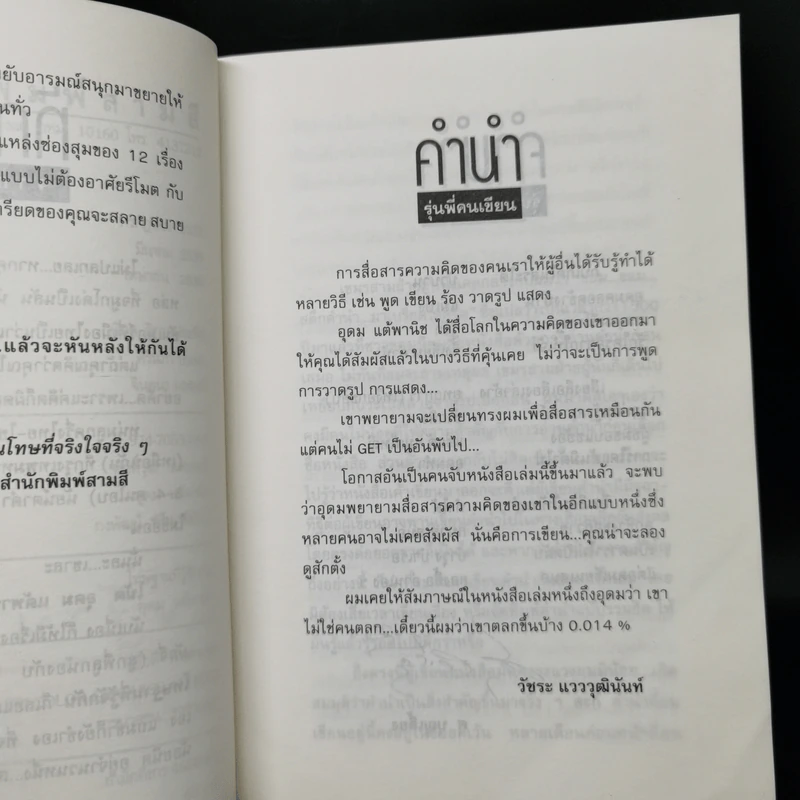 ยับอารมณ์สนุกมาขยายให้
นทั่ว
แหล่งซ่องสุมของ 12 เรื่อง
แบบไม่ต้องอาศัยรีโมต กับ
รียดของคุณจะสลาย สบาย
แล้วจะหันหลังให้กันได้
นโทษที่จริงใจจริง ๆ
สำนักพิมพ์สามสี
คำนำ
รุ่นพี่คนเขียน
การสื่อสารความคิดของคนเราให้ผู้อื่นได้รับรู้ทำได้
หลายวิธี เช่น พูด เขียน ร้อง วาดรูป แสดง
อุดม แต้พานิช ได้สื่อโลกในความคิดของเขาออกมา
ให้คุณได้สัมผัสแล้วในบางวิธีที่คุ้นเคย ไม่ว่าจะเป็นการพูด
การวาดรูป การแสดง...
เขาพยายามจะเปลี่ยนทรงผมเพื่อสื่อสารเหมือนกัน
แต่คนไม่ GET เป็นอันพับไป...
โอกาสอันเป็นคนจับหนังสือเล่มนี้ขึ้นมาแล้ว จะพบ
ว่าอุดมพยายามสื่อสารความคิดของเขาในอีกแบบหนึ่งซึ่ง
หลายคนอาจไม่เคยสัมผัส นั่นคือการเขียน...คุณน่าจะลอง
ดูสักตั้ง
ผมเคยให้สัมภาษณ์ในหนังสือเล่มหนึ่งถึงอุดมว่า เขา
ไม่ใช่คนตลก...เดี๋ยวนี้ผมว่าเขาตลกขึ้นบ้าง 0.014 %
วัชระ แวววุฒินันท์